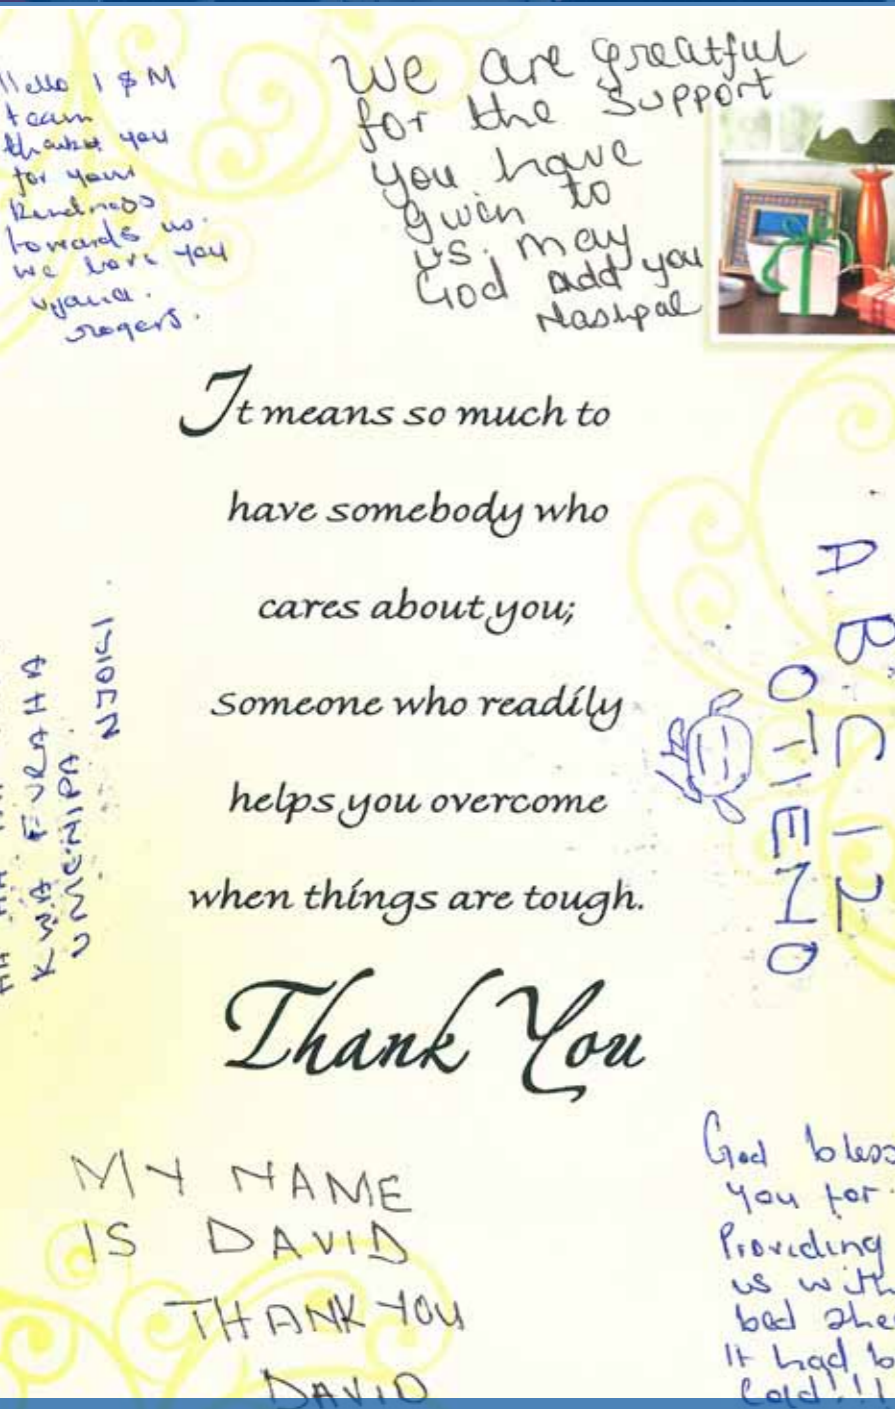 Hello I & M
team
thanks you
for your
kindness
towards us.
we love you
rogers.
We are greatful
for the support
you have
given to
us. may
God add you
Mashpal
It means so much to
have somebody who
cares about you;
someone who readily
helps you overcome
when things are tough.
Thank You
KWA FURAHA
UMENIPA.
NJOKI
A B C 1 2
OTIENO
MY NAME
IS DAVID
THANK YOU
DAVID
God bless
you for
Providing
us with
bed shee
It had b
Cold!!!